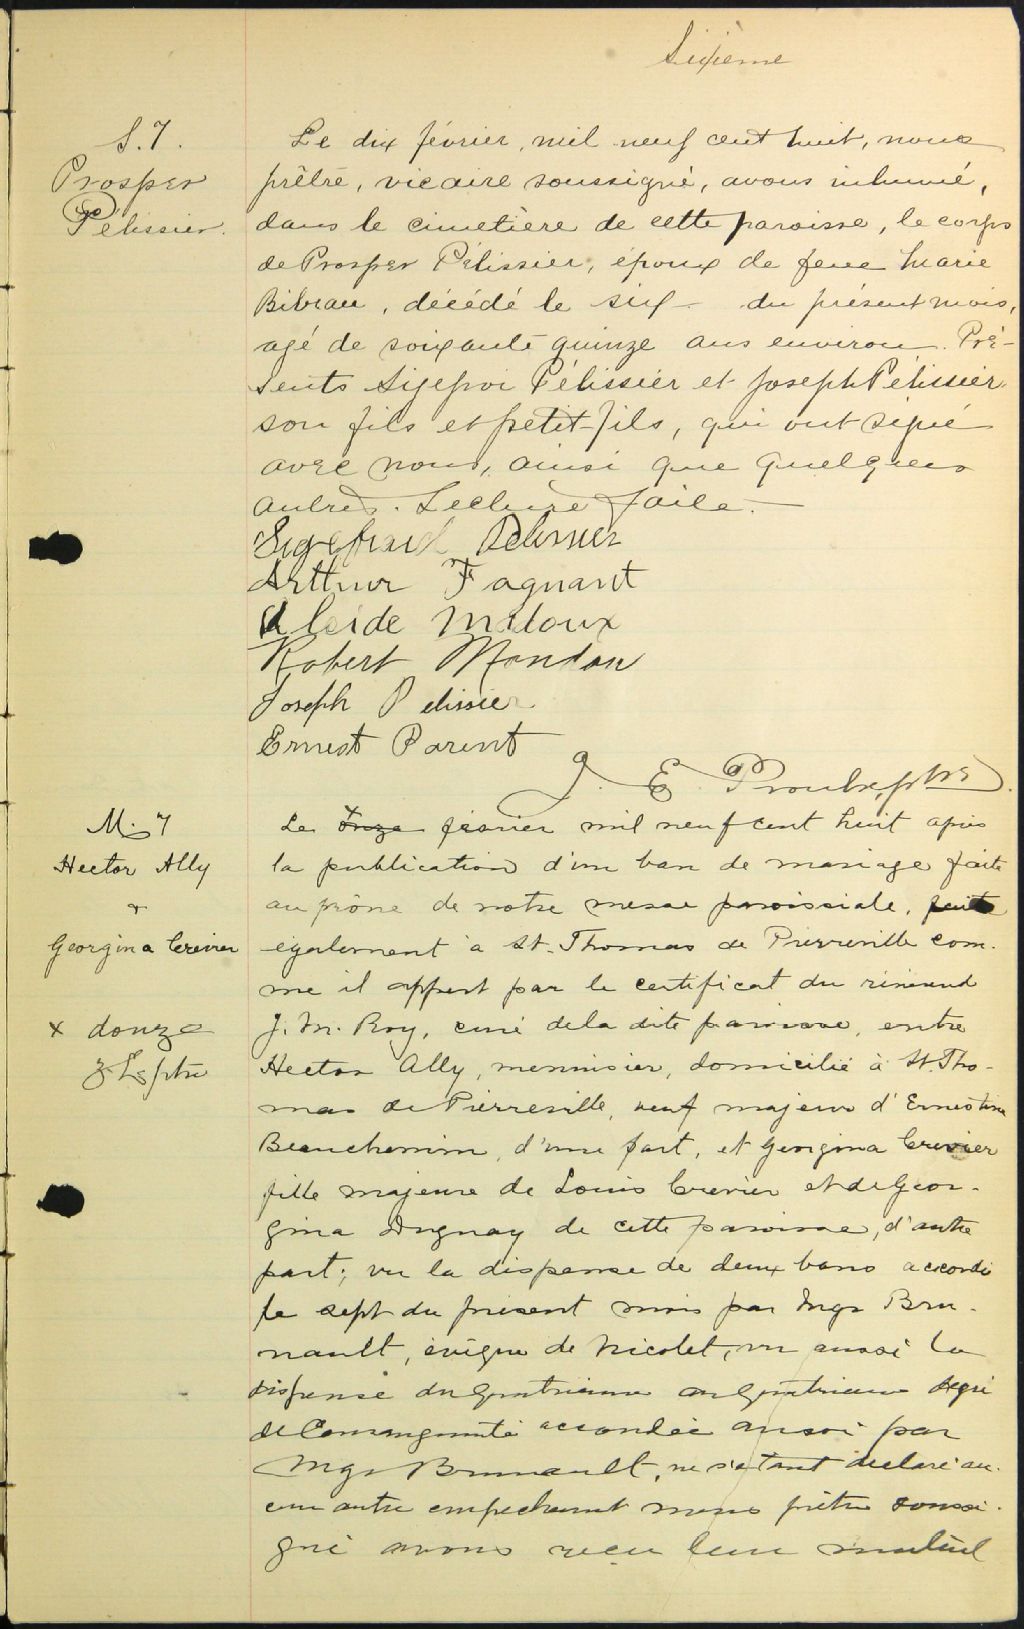 Sixième
S. 7.
Prosper
Pélissier.
Le dix février, mil neuf cent huit, nous
prêtre, vicaire soussigné, avons inhumé,
dans le cimetière de cette paroisse, le corps
de Prosper Pélissier, époux de feue Marie
Bibeau, décédé le six du présent mois,
agé de soixante quinze ans environ. Pré-
sents Sigefroi Pélissier et Joseph Pélissier
son fils et petit-fils, qui ont signé
avec nous, ainsi que quelques
autres. Lecture faite.
Sigefroid Pelissier
Arthur Fagnant
Alcide Matoux
Robert Mondou
Joseph Pelissier
Ernest Parent
J. E. Proulx, ptre.
M. 7
Hector Ally
+
Georgina Crevier
x douze
ptre
Le onze février mil neuf cent huit après
la publication d'un ban de mariage faite
au prône de notre messe paroissiale, faite
également à St. Thomas de Pierreville com-
me il appert par le certificat du révérend
J. M. Roy, curé de la dite paroisse, entre
Hector Ally, menuisier, domicilié à St. Tho-
mas de Pierreville, veuf majeur d'Ernestine
Beauchemin, d'une part, et Georgina Crevier
fille majeure de Louis Crevier et de Geor-
gina Duguay de cette paroisse, d'autre
part; vu la dispense de deux bans accordé
le sept du présent mois par Mgr Bru-
nault, évêque de Nicolet, vu aussi la
dispense du quatrième au quatrième degré
de Consanguinité accordée aussi par
Mgr Brunault, ne s'étant déclaré au-
cun autre empechement nous prêtre soussi-
gné avons reçu leur mutuel